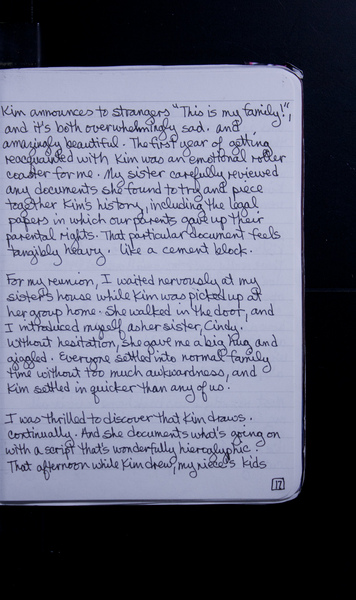 Kim announces to strangers "This is my family!",
and it's both overwhelmingly sad. and,
amazingly beautiful. The first year of getting
reacquainted with Kim was an emotional roller
coaster for me. My sister carefully reviewed
any documents she found to try and piece
together Kim's history, including the legal
papers in which our parents gave up their
parental rights. That particular document feels
tangibly heavy. Like a cement block.
For my reunion, I waited nervously at my
sister's house while Kim was picked up at
her group home. She walked in the door, and
I introduced myself as her sister, Cindy.
Without hesitation, she gave me a big hug and
giggled. Everyone settled into normal family
time without too much awkwardness, and
Kim settled in quicker than any of us.
I was thrilled to discover that Kim draws.
continually. And she documents what's going on
with a script that's wonderfully hieroglyphic.
That afternoon while Kim drew, my niece's kids
17